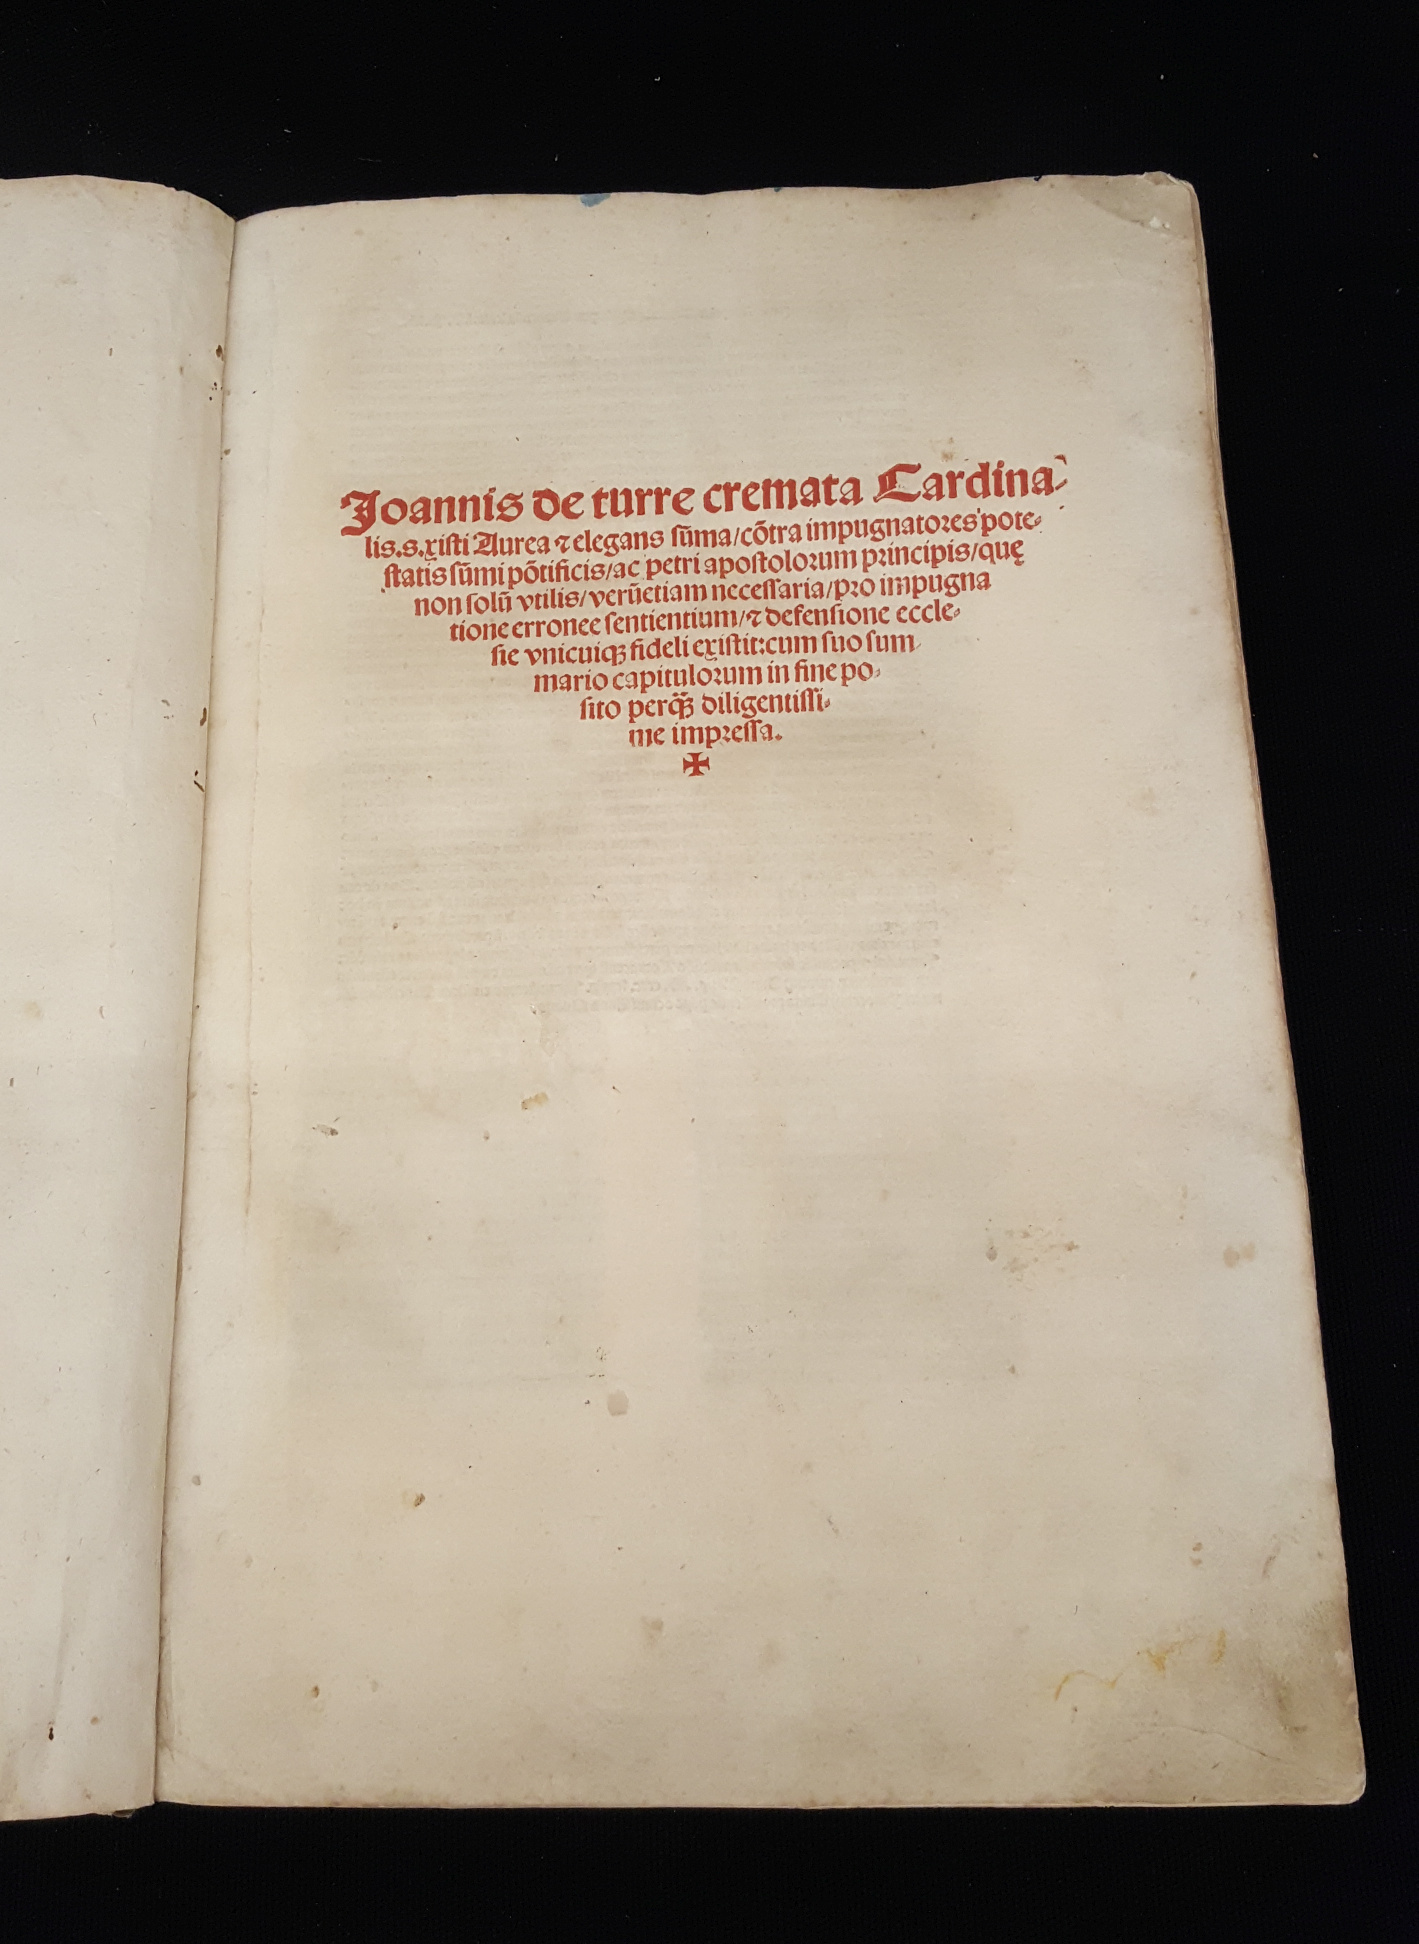 Joannis de turre cremata Cardina-
lis.s.xisti Aurea ⁊ elegans sũma/cõtra impugnatores pote-
statis sũmi põtificis/ac petri apostolorum principis/quę
non solũ vtilis/verũetiam necessaria/pro impugna
tione erronee sentientium/⁊ defensione eccle-
sie vnicuiqꝫ fideli existit:cum suo sum
mario capitulorum in fine po-
sito perq̃ꝫ diligentissi-
me impressa.
✠